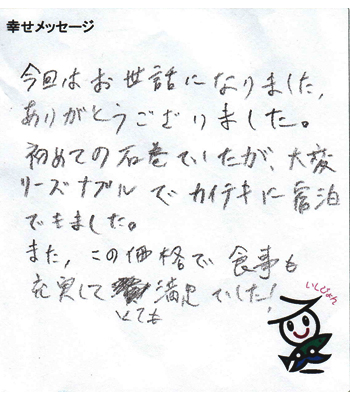 幸せメッセージ
今回はお世話になりました,
ありがとうございました。
初めての石巻でしたが、大変
リーズナブルでカイテキに宿泊
できました。
また,この価格で食事も
充実して満足でした!
とても
いしぴょん